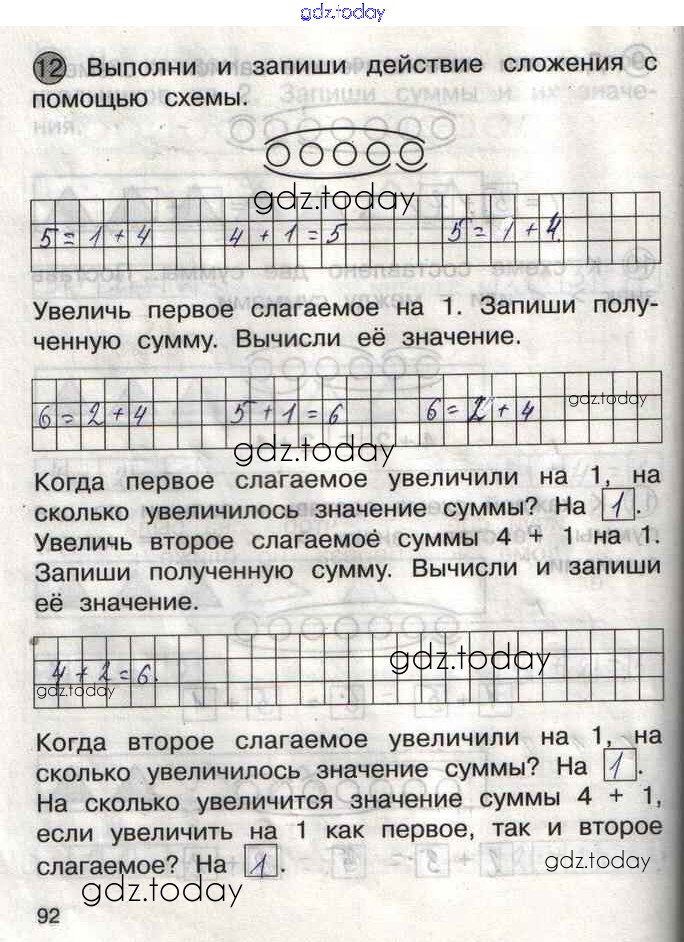 gdz.today
12 Выполни и запиши действие сложения с
помощью схемы.
gdz.today
5 = 1 + 4 4 + 1 = 5 5 = 1 + 4.
Увеличь первое слагаемое на 1. Запиши полу-
ченную сумму. Вычисли её значение.
gdz.today
6 = 2 + 4 5 + 1 = 6 6 = 2 + 4
gdz.today
Когда первое слагаемое увеличили на 1, на
сколько увеличилось значение суммы? На 1.
Увеличь второе слагаемое суммы 4 + 1 на 1.
Запиши полученную сумму. Вычисли и запиши
её значение.
gdz.today
4 + 2 = 6.
gdz.today
Когда второе слагаемое увеличили на 1, на
сколько увеличилось значение суммы? На 1.
На сколько увеличится значение суммы 4 + 1,
если увеличить на 1 как первое, так и второе
слагаемое? На 1.
gdz.today
gdz.today
92